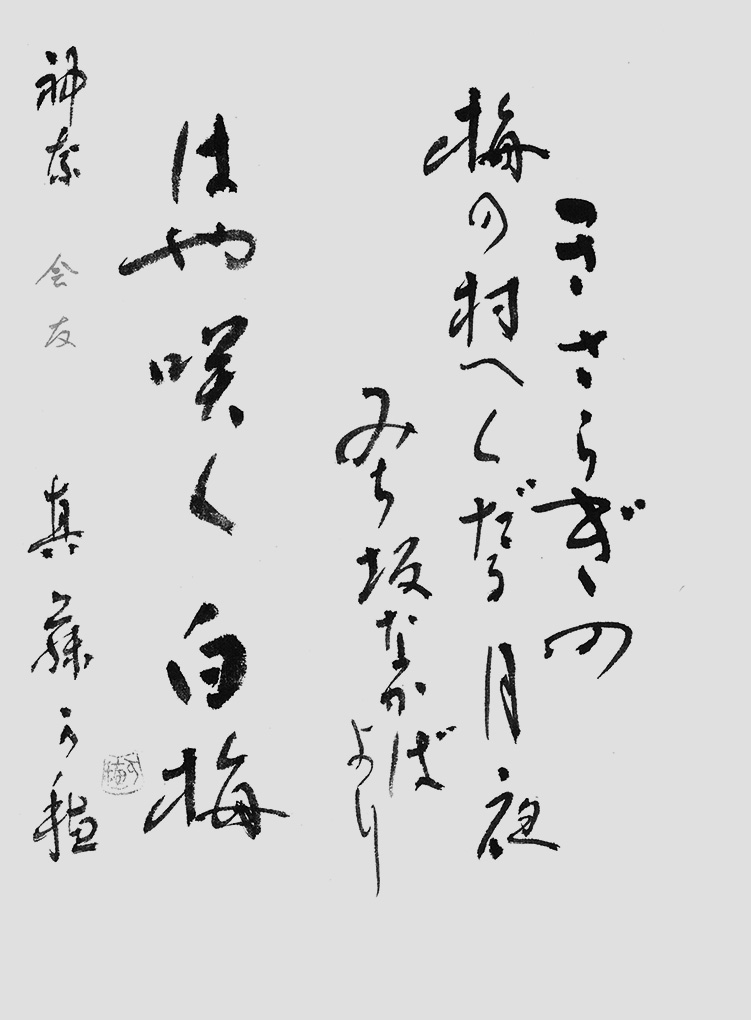 きさらぎの
梅の村へくだる月夜
みち坂なかば
より
はや咲く白梅
神奈 会友 真藤